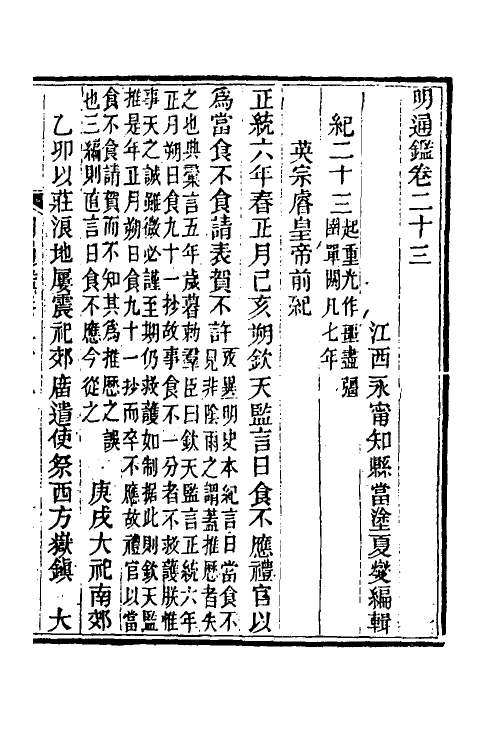 明通鑑卷二十三
江西永甯知縣當塗夏燮編輯
紀二十三起重光作噩盡彊
圉單閼凡七年
英宗睿皇帝前紀
正統六年春正月己亥朔欽天監言日食不應禮官以
爲當食不食請表賀不許攷異明史本紀言日當食不
見非陰雨之謂蓋推歷者失
之也典彙言五年歲暮勅羣臣曰欽天監言正統六年
正月朔日食九十一抄故事食不一分者不救護朕惟
事天之誠雖微必謹至期仍救護如制据此則欽天監
推是年正月朔日食九十一抄而卒不應故禮官以當
食不食請賀而不知其爲推歷之誤
也三編則直言日食不應今從之
庚戌大祀南郊
乙卯以莊浪地屢震祀郊廟遣使祭西方嶽鎮
大